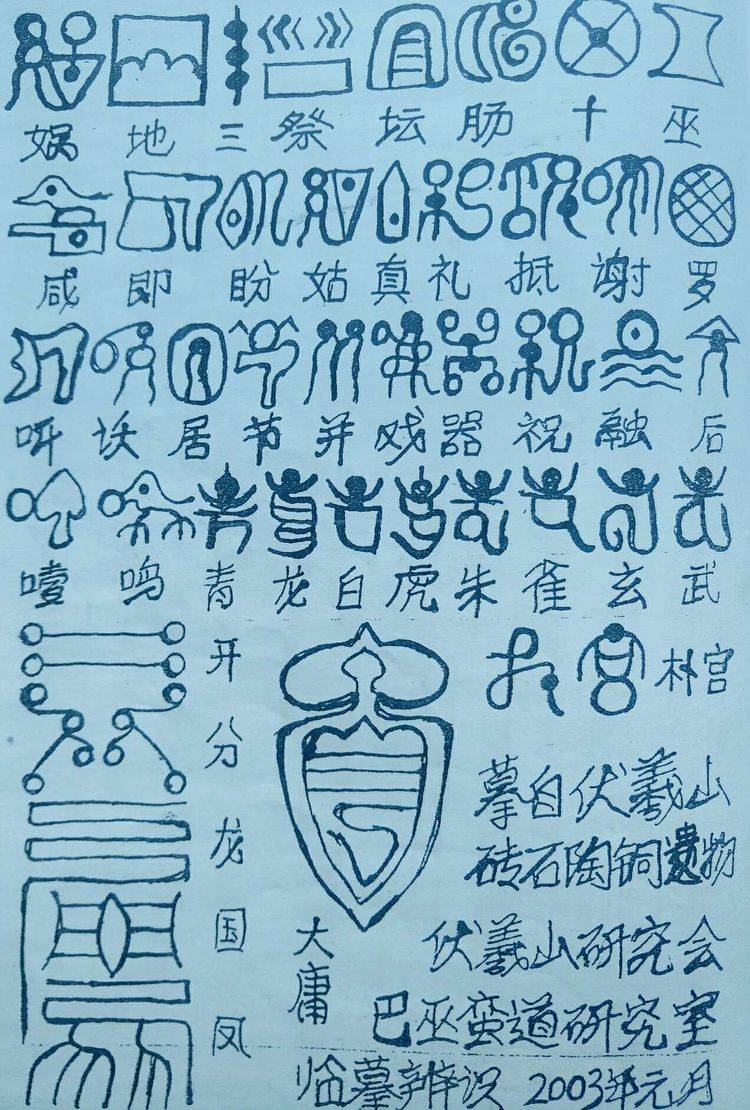 娲 地 三 祭 坛 肠 十 巫
咸 即 盼 姑 真 礼 抵 谢 罗
吀 妖 居 节 并 戏 器 祝 融 后
噎 鸣 青 龙 白 虎 朱 雀 玄 武
开 分 龙 国 凤
大庸
朴 宫
摹自伏羲山
砖石陶铜遗物
伏羲山研究会
巴巫蛮道研究室
临摹辨识 2003年元月